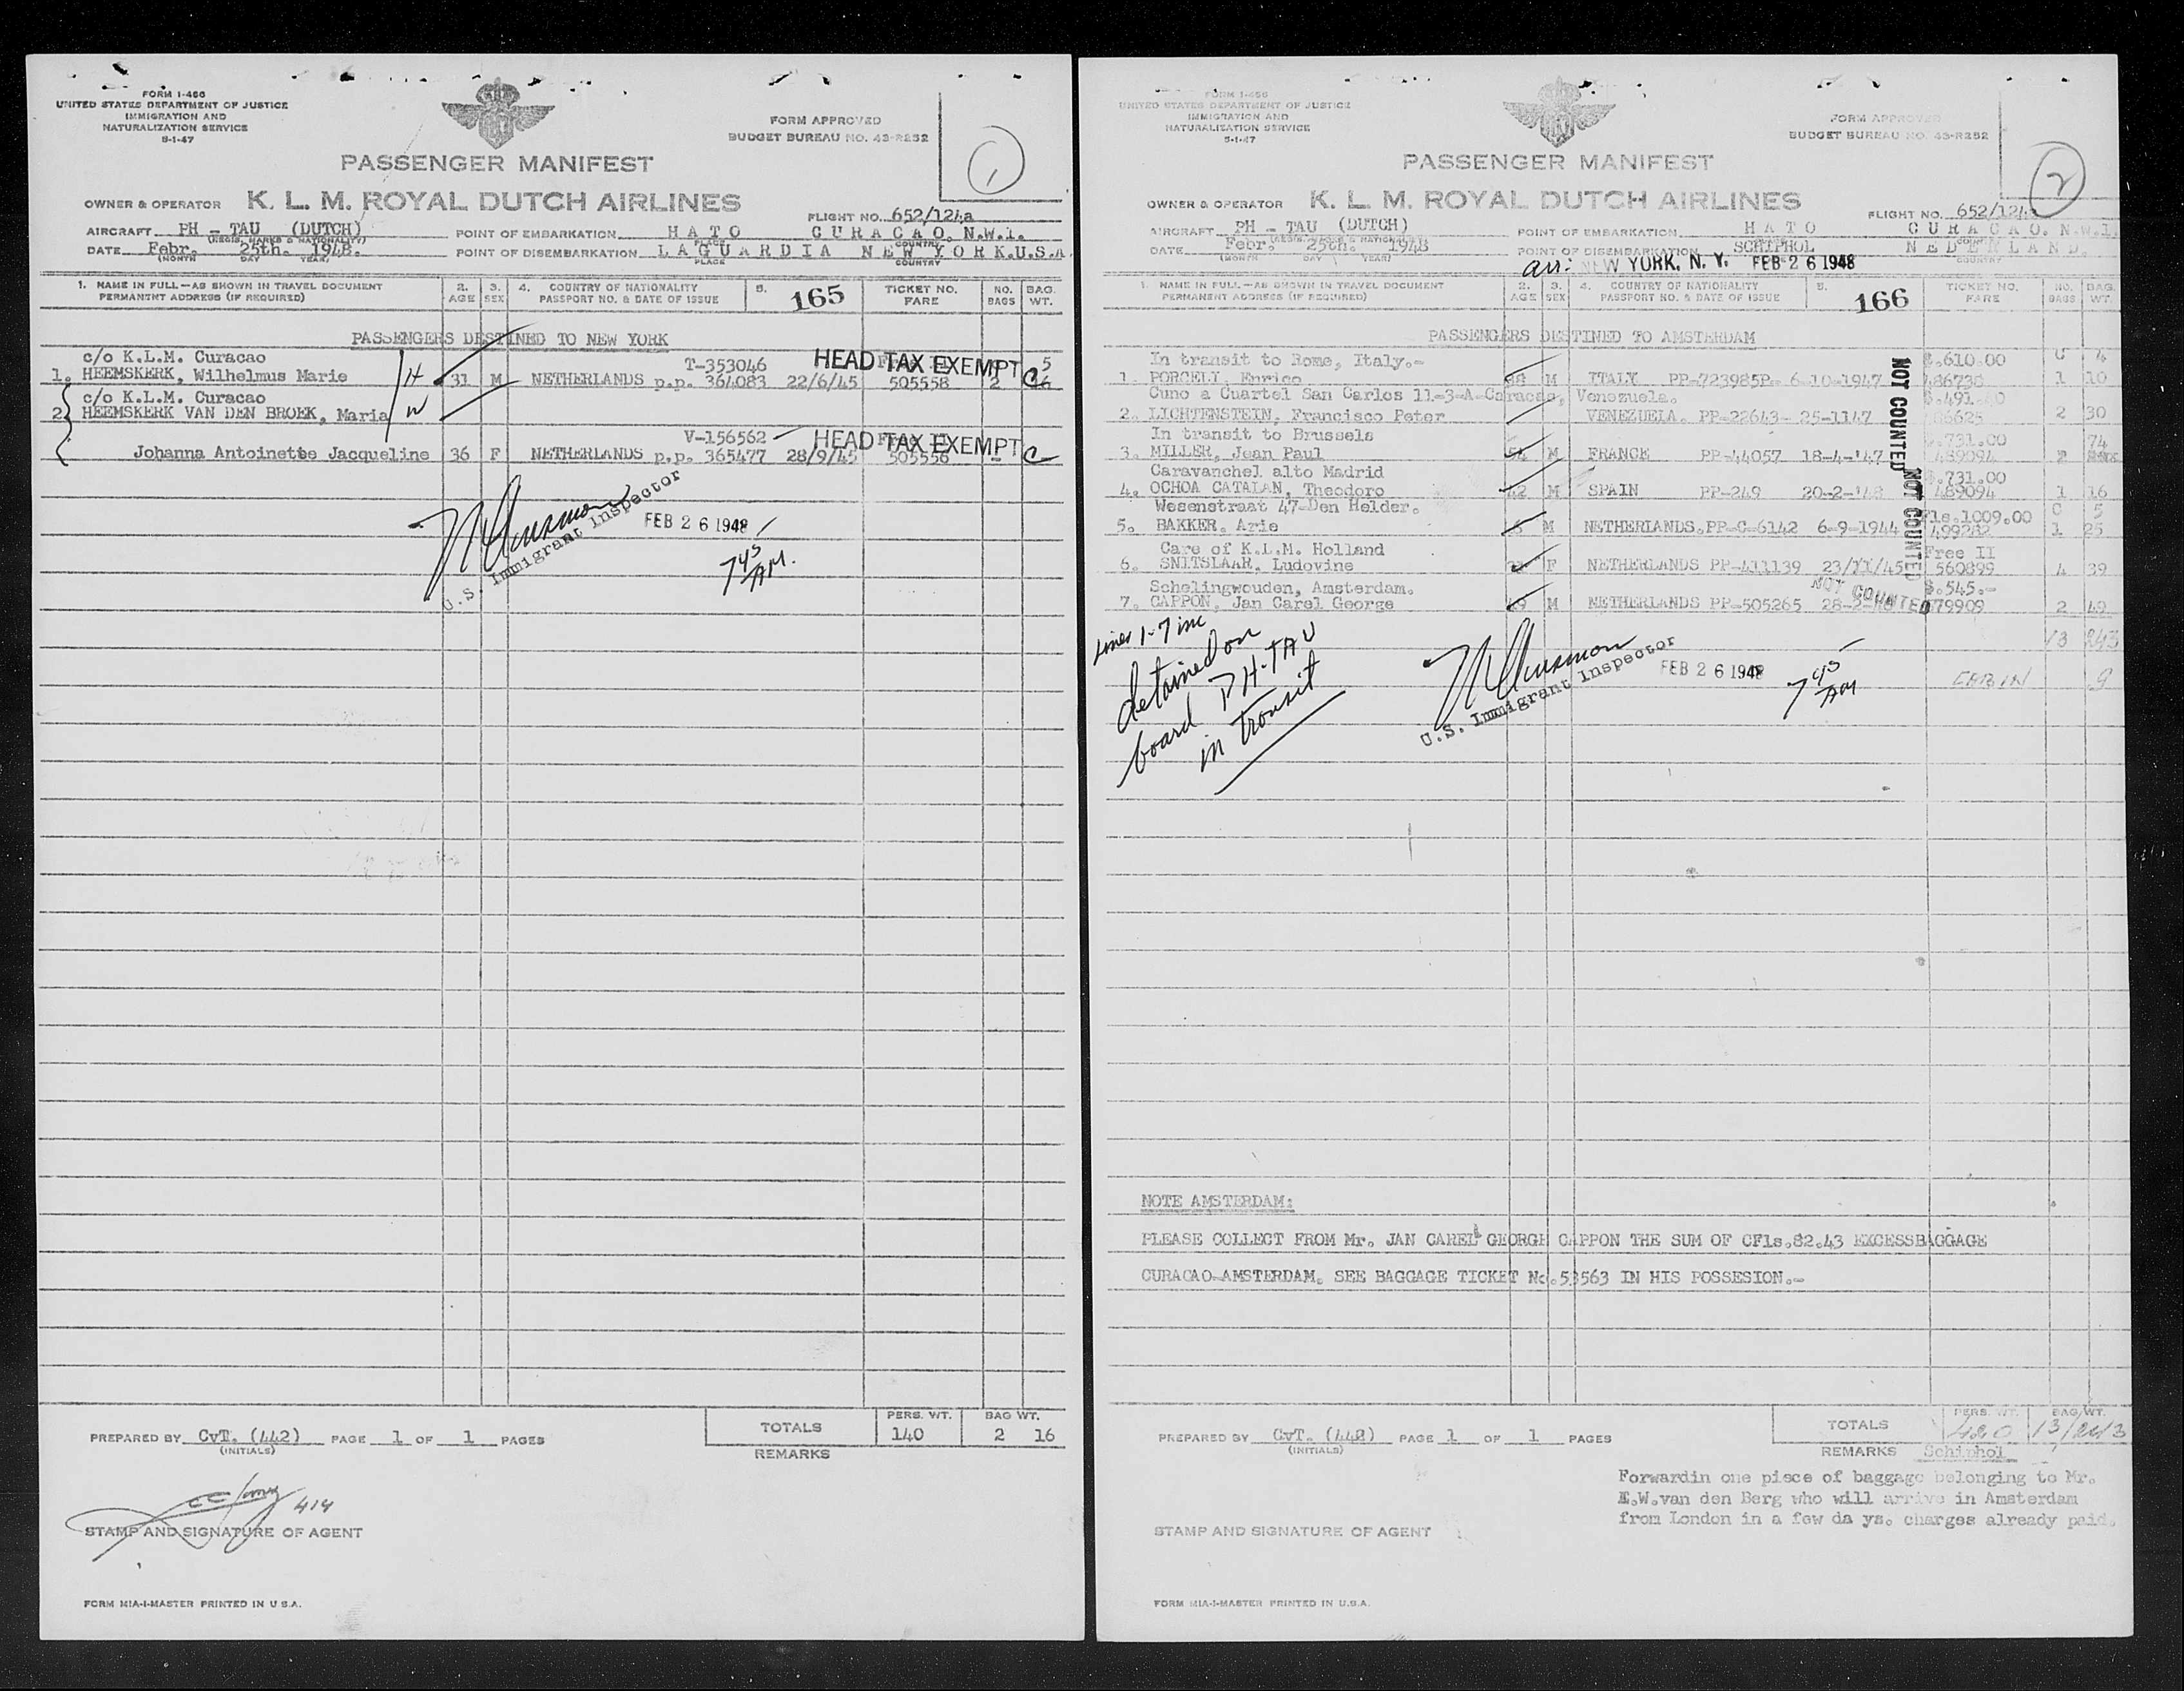 FORM I-466
UNITED STATES DEPARTMENT OF JUSTICE
IMMIGRATION AND
NATURALIZATION SERVICE
5-1-47
FORM APPROVED
BUDGET BUREAU NO. 43-R252
1
PASSENGER MANIFEST
OWNER & OPERATOR K. L. M. ROYAL DUTCH AIRLINES
FLIGHT NO. 652/124a
AIRCRAFT PH - TAU (DUTCH) POINT OF EMBARKATION HATO CURACAO. N.W.I.
(REGIS. MARKS & NATIONALITY) PLACE COUNTRY
DATE Febr. 25th. 1948. POINT OF DISEMBARKATION LAGUARDIA NEW YORK.U.S.A
(MONTH DAY YEAR) PLACE COUNTRY
1. NAME IN FULL—AS SHOWN IN TRAVEL DOCUMENT 2. 3. 4. COUNTRY OF NATIONALITY 5. 165 TICKET NO. NO. BAG.
PERMANENT ADDRESS (IF REQUIRED) AGE SEX PASSPORT NO. & DATE OF ISSUE FARE BAGS WT.
PASSENGERS DESTINED TO NEW YORK
c/o K.L.M. Curacao T-353046 HEAD TAX EXEMPT 5
1. HEEMSKERK, Wilhelmus Marie H 31 M NETHERLANDS p.p. 364083 22/6/45 505558 2 C
c/o K.L.M. Curacao
2. HEEMSKERK VAN DEN BROEK, Maria W
V-156562 HEAD TAX EXEMPT
Johanna Antoinette Jacqueline 36 F NETHERLANDS p.p. 365477 28/9/45 505556 - C
U.S. Immigrant Inspector
FEB 26 1948
7 45 AM.
TOTALS PERS. WT. 140 BAG WT. 2 16
PREPARED BY CvT. (442) PAGE 1 OF 1 PAGES
(INITIALS)
REMARKS
414
STAMP AND SIGNATURE OF AGENT
FORM MIA-I-MASTER PRINTED IN U S.A.
FORM I-466
UNITED STATES DEPARTMENT OF JUSTICE
IMMIGRATION AND
NATURALIZATION SERVICE
5-1-47
FORM APPROVED
BUDGET BUREAU NO. 43-R252
2
PASSENGER MANIFEST
OWNER & OPERATOR K. L. M. ROYAL DUTCH AIRLINES
FLIGHT NO. 652/124
AIRCRAFT PH - TAU (DUTCH) POINT OF EMBARKATION HATO CURACAO. N.W.I.
DATE Febr. 25th. 1948 POINT OF DISEMBARKATION SCHIPHOL
(MONTH DAY YEAR) COUNTRY
arr: NEW YORK, N. Y. FEB 26 1948
1. NAME IN FULL—AS SHOWN IN TRAVEL DOCUMENT 2. 3. 4. COUNTRY OF NATIONALITY 5. 166 TICKET NO. NO. BAG.
PERMANENT ADDRESS (IF REQUIRED) AGE SEX PASSPORT NO. & DATE OF ISSUE FARE BAGS WT.
PASSENGERS DESTINED TO AMSTERDAM
In transit to Rome, Italy.- $.610.00 C 4
1. PORCELL, Enrico M ITALY PP-723985P- 6-10-1947 1 10
Cuno a Cuartel San Carlos 11-3-A-Caracas, Venezuela.
2. LICHTENSTEIN, Francisco Peter VENEZUELA. PP-22643- 25-1147 2 30
In transit to Brussels 731.00 74
3. MILLER, Jean Paul M FRANCE PP-44057 18-4-'47 489094
Caravanchel alto Madrid $.731.00
4. OCHOA CATALAN, Theodoro 42 M SPAIN PP-249 489094 1 16
Wesenstraat 47-Den Helder. fls.1009.00 C 5
5. BAKKER, Arie M NETHERLANDS.PP-C-6142 6-9-1944 499282 1 25
Care of K.L.M. Holland Free II
6. SNITSLAAR, Ludovine F NETHERLANDS PP-411139 23/11/45 560899 4 39
Schelingwouden, Amsterdam. $.545.-
7. CAPPON, Jan Carel George 49 M NETHERLANDS PP-505265 79909 2 49
NOT COUNTED
NOT COUNTED
NOT COUNTED
13 243
CABIN 9
Lines 1-7 inc
detained on
board PH-TAU
in transit
U.S. Immigrant Inspector
FEB 26 1948
7 45 AM
NOTE AMSTERDAM:
PLEASE COLLECT FROM Mr. JAN CAREL GEORGE CAPPON THE SUM OF CFls.82.43 EXCESSBAGGAGE
CURACAO-AMSTERDAM. SEE BAGGAGE TICKET No.53563 IN HIS POSSESION.-
TOTALS PERS. WT. 420 BAG WT. 13/243
PREPARED BY CvT. (442) PAGE 1 OF 1 PAGES
(INITIALS)
REMARKS Schiphol
Forwardin one piece of baggage belonging to Mr.
E.W.van den Berg who will arrive in Amsterdam
from London in a few da ys. charges already paid.
STAMP AND SIGNATURE OF AGENT
FORM MIA-I-MASTER PRINTED IN U.S.A.